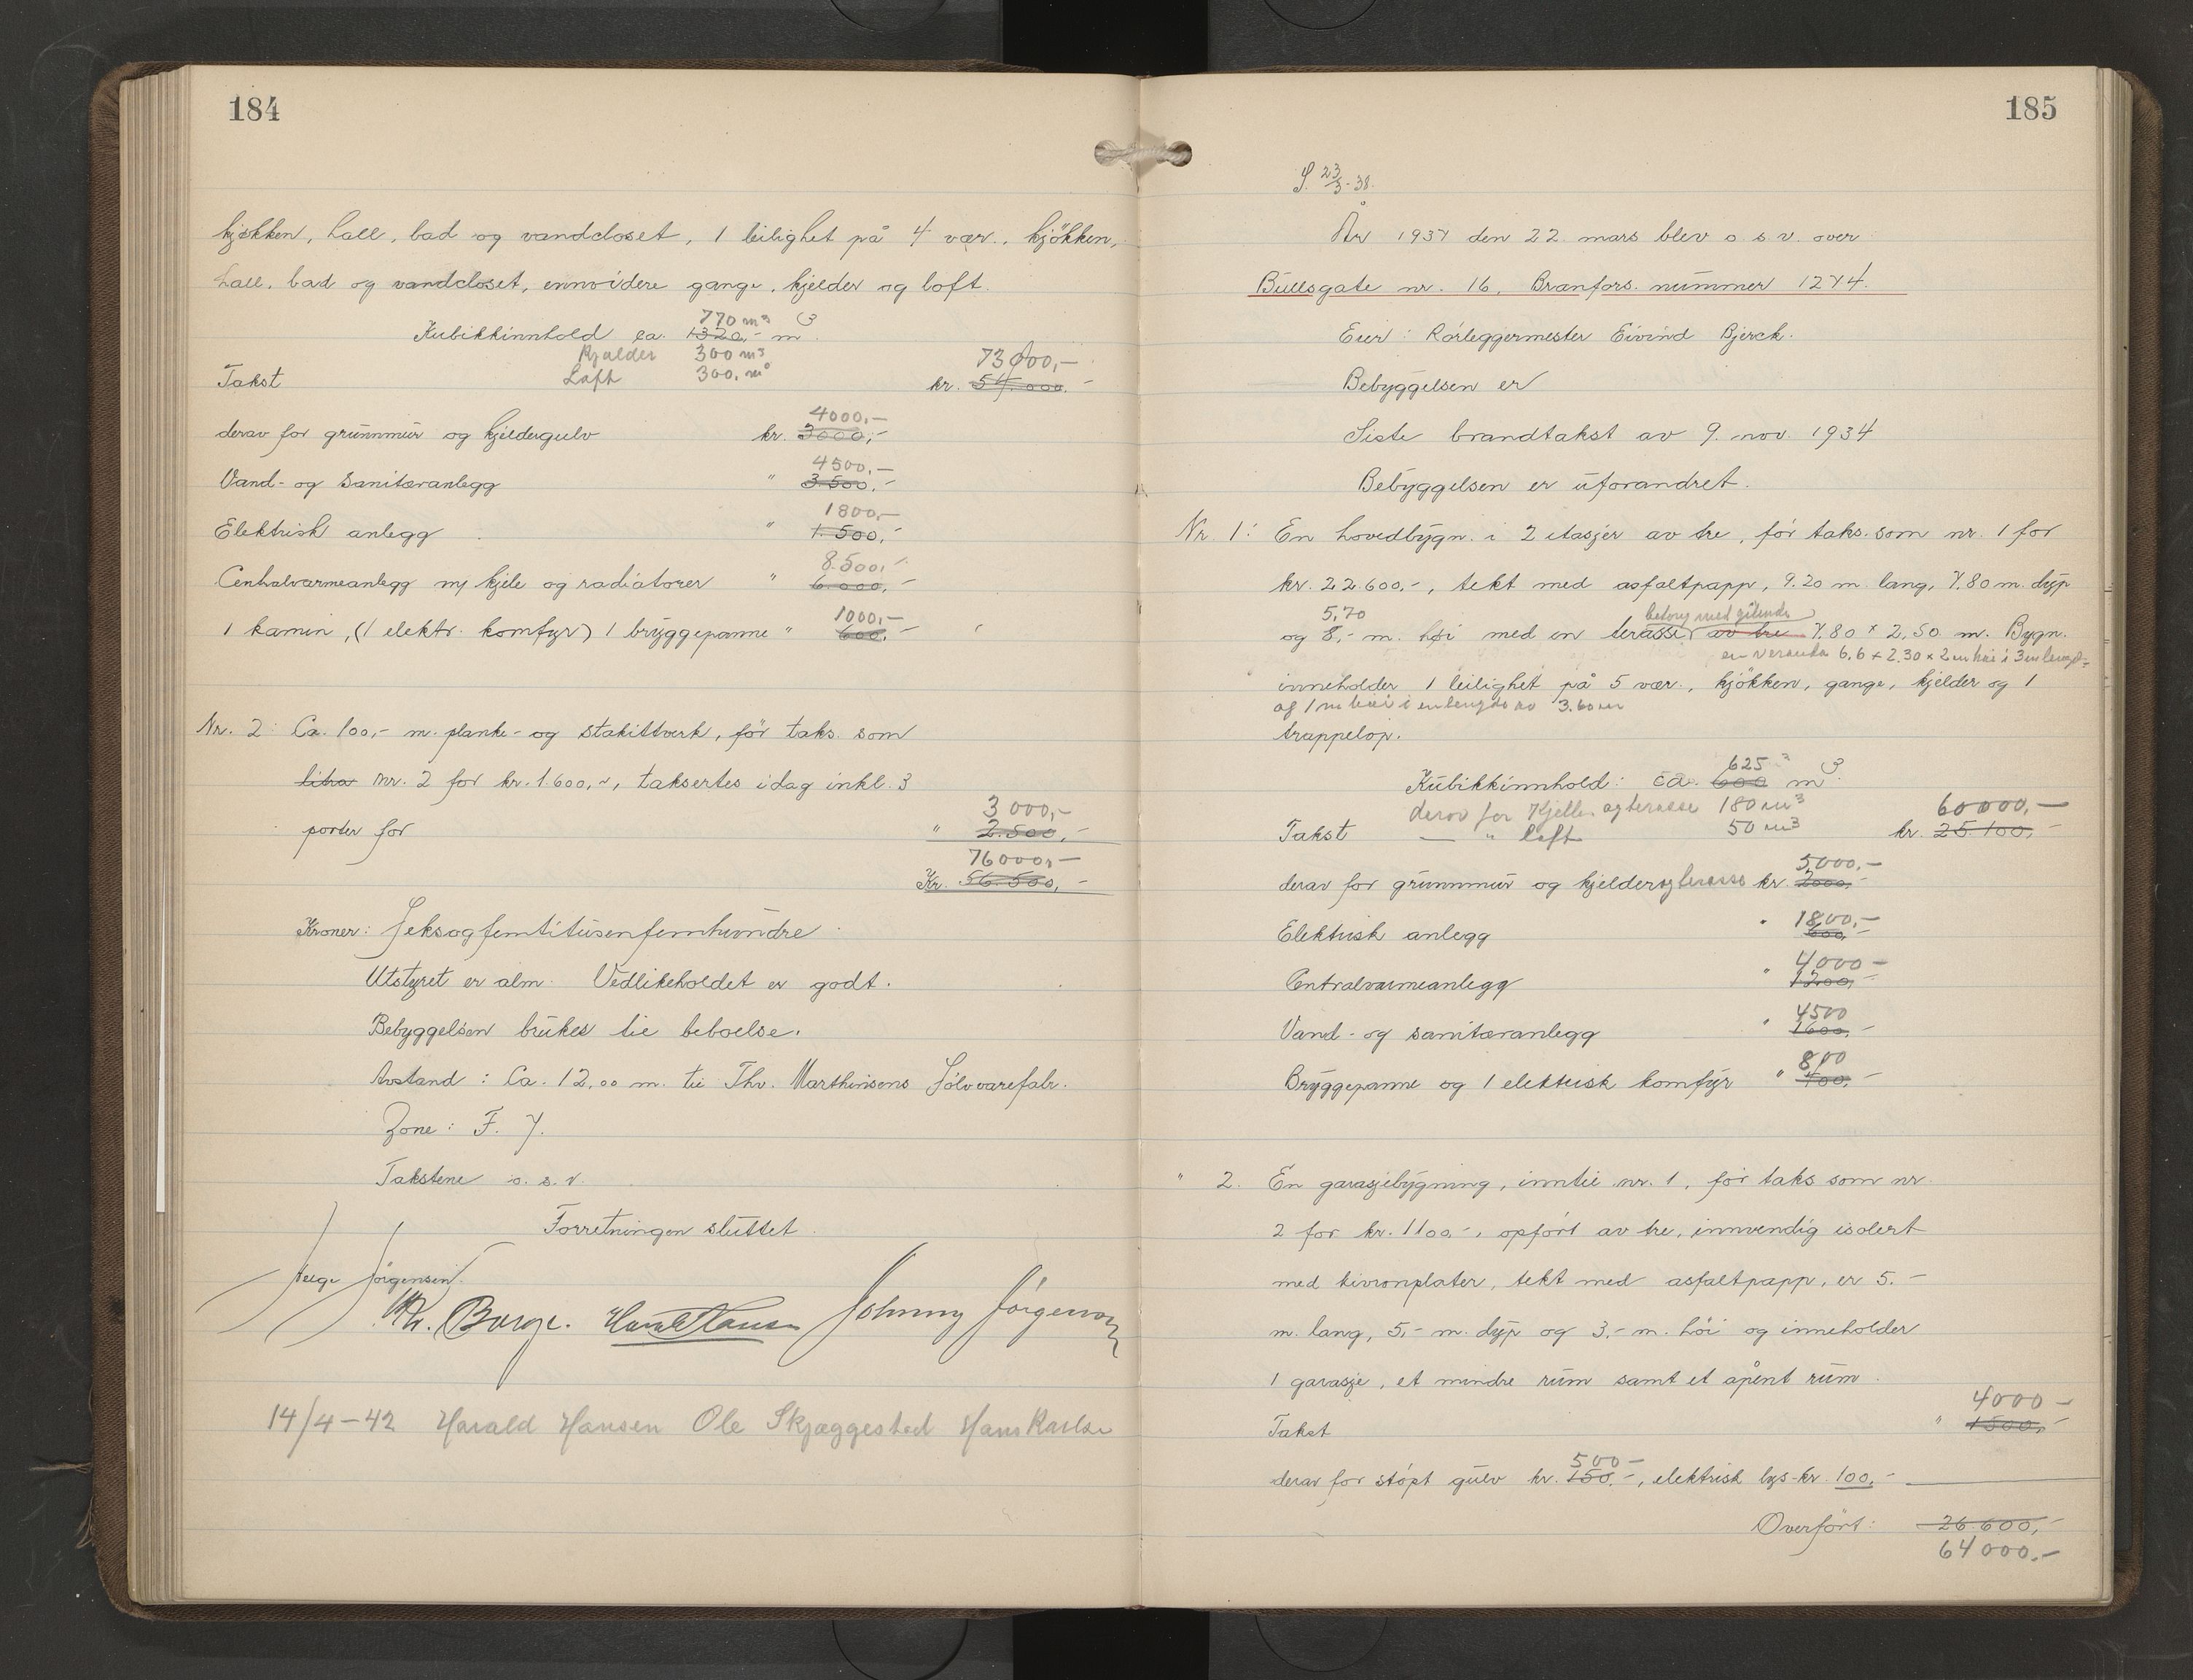 184
kjøkken, hall, bad og vandcloset, 1 leilighet på 4 vær., kjökken,
hall, bad og vandcloset, ennvidere gange, kjelder og loft.
770 m³
Kubikkinnhold ca. 1320,- m³.
Kjælder 300 m³
Loft 300, m³
73000,-
Takst kr. 54.000.-
4000,-
derav for grunnmur og kjeldergulv kr. 3000,-
4500,-
Vand- og sanitæranlegg " 3.500,-
1800,-
Elektrisk anlegg " 1.500,-
8.500,-
Centralvarmeanlegg m/ kjele og radiatorer " 6.000,-
1000,-
1 kamin, (1 elektr. komfyr) 1 bryggepanne " 600,-
Nr. 2: Ca. 100,- m. planke- og stakittverk, før taks. som
litra nr. 2 for kr. 1.600,-, taksertes idag inkl. 3
3000,-
porter for " 2.500,-
76000,-
Kr. 56.500,-
Kroner: Seksogfemtitusenfemhundre
Utstyret er alm. Vedlikeholdet er godt.
Bebyggelsen brukes til beboelse.
Avstand: Ca. 12,00 m. til Thv. Marthinsens Sølvvarefabr.
Zone: F. 7.
Takstene o. s. v.
Forretningen sluttet.
Helge Jörgensen.
Harald Hansen Johnny Jörgensen
14/4-42 Harald Hansen Ole Skjæggestad Hans Karlsen
185
S. 23/3-38.
År 1937 den 22. mars blev o. s. v. over
Bullsgate nr. 16, Branfors. nummer 1274.
Eier: Rörleggermester Eivind Bjerck.
Bebyggelsen er
Siste brandtakst av 9. nov. 1934
Bebyggelsen er uforandret.
Nr. 1: En hovedbygn. i 2 etasjer av tre, før taks. som nr. 1 for
kr. 22.600,-, tekt med asfaltpapp, 9.20 m. lang, 7.80 m. dyp
5,70 betong med gitende
og 8,- m. høi med en terasse av tre 7.80 x 2,50 m. Bygn.
en veranda 6,6 x 2.30 x 2 m høi i 3 m lengde
inneholder 1 leilighet på 5 vær., kjökken, gange, kjelder og 1
og 1 m høi i en lengde av 3.60 m
trappelöp.
625
Kubikkinnhold: ca. 600 m³.
derav for Kjeller og terasse 180 m³
60000,-
Takst — " loft 50 m³ kr. 25.100,-
5000,-
derav for grunnmur og kjelder og terasse kr. 2000,-
1800,-
Elektrisk anlegg " 600,-
4000-
Centralvarmeanlegg " 1200,-
4500
Vand- og sanitæranlegg " 1600,-
800
Bryggepanne og 1 elektrisk komfyr " 400,-
" 2. En garasjebygning, inntil nr. 1, før taks som nr.
2 for kr. 1100,-, opfört av tre, innvendig isolert
med tivronplater, tekt med asfaltpapp, er 5.-
m. lang, 5,- m. dyp og 3,- m. höi og inneholder
1 garasje, et mindre rum samt et åpent rum.
4000-
Takst " 1500,-
500-
derav for støpt gulv kr. 150,-, elektrisk lys kr. 100,-
Overfört: 26.600,-
64000,-